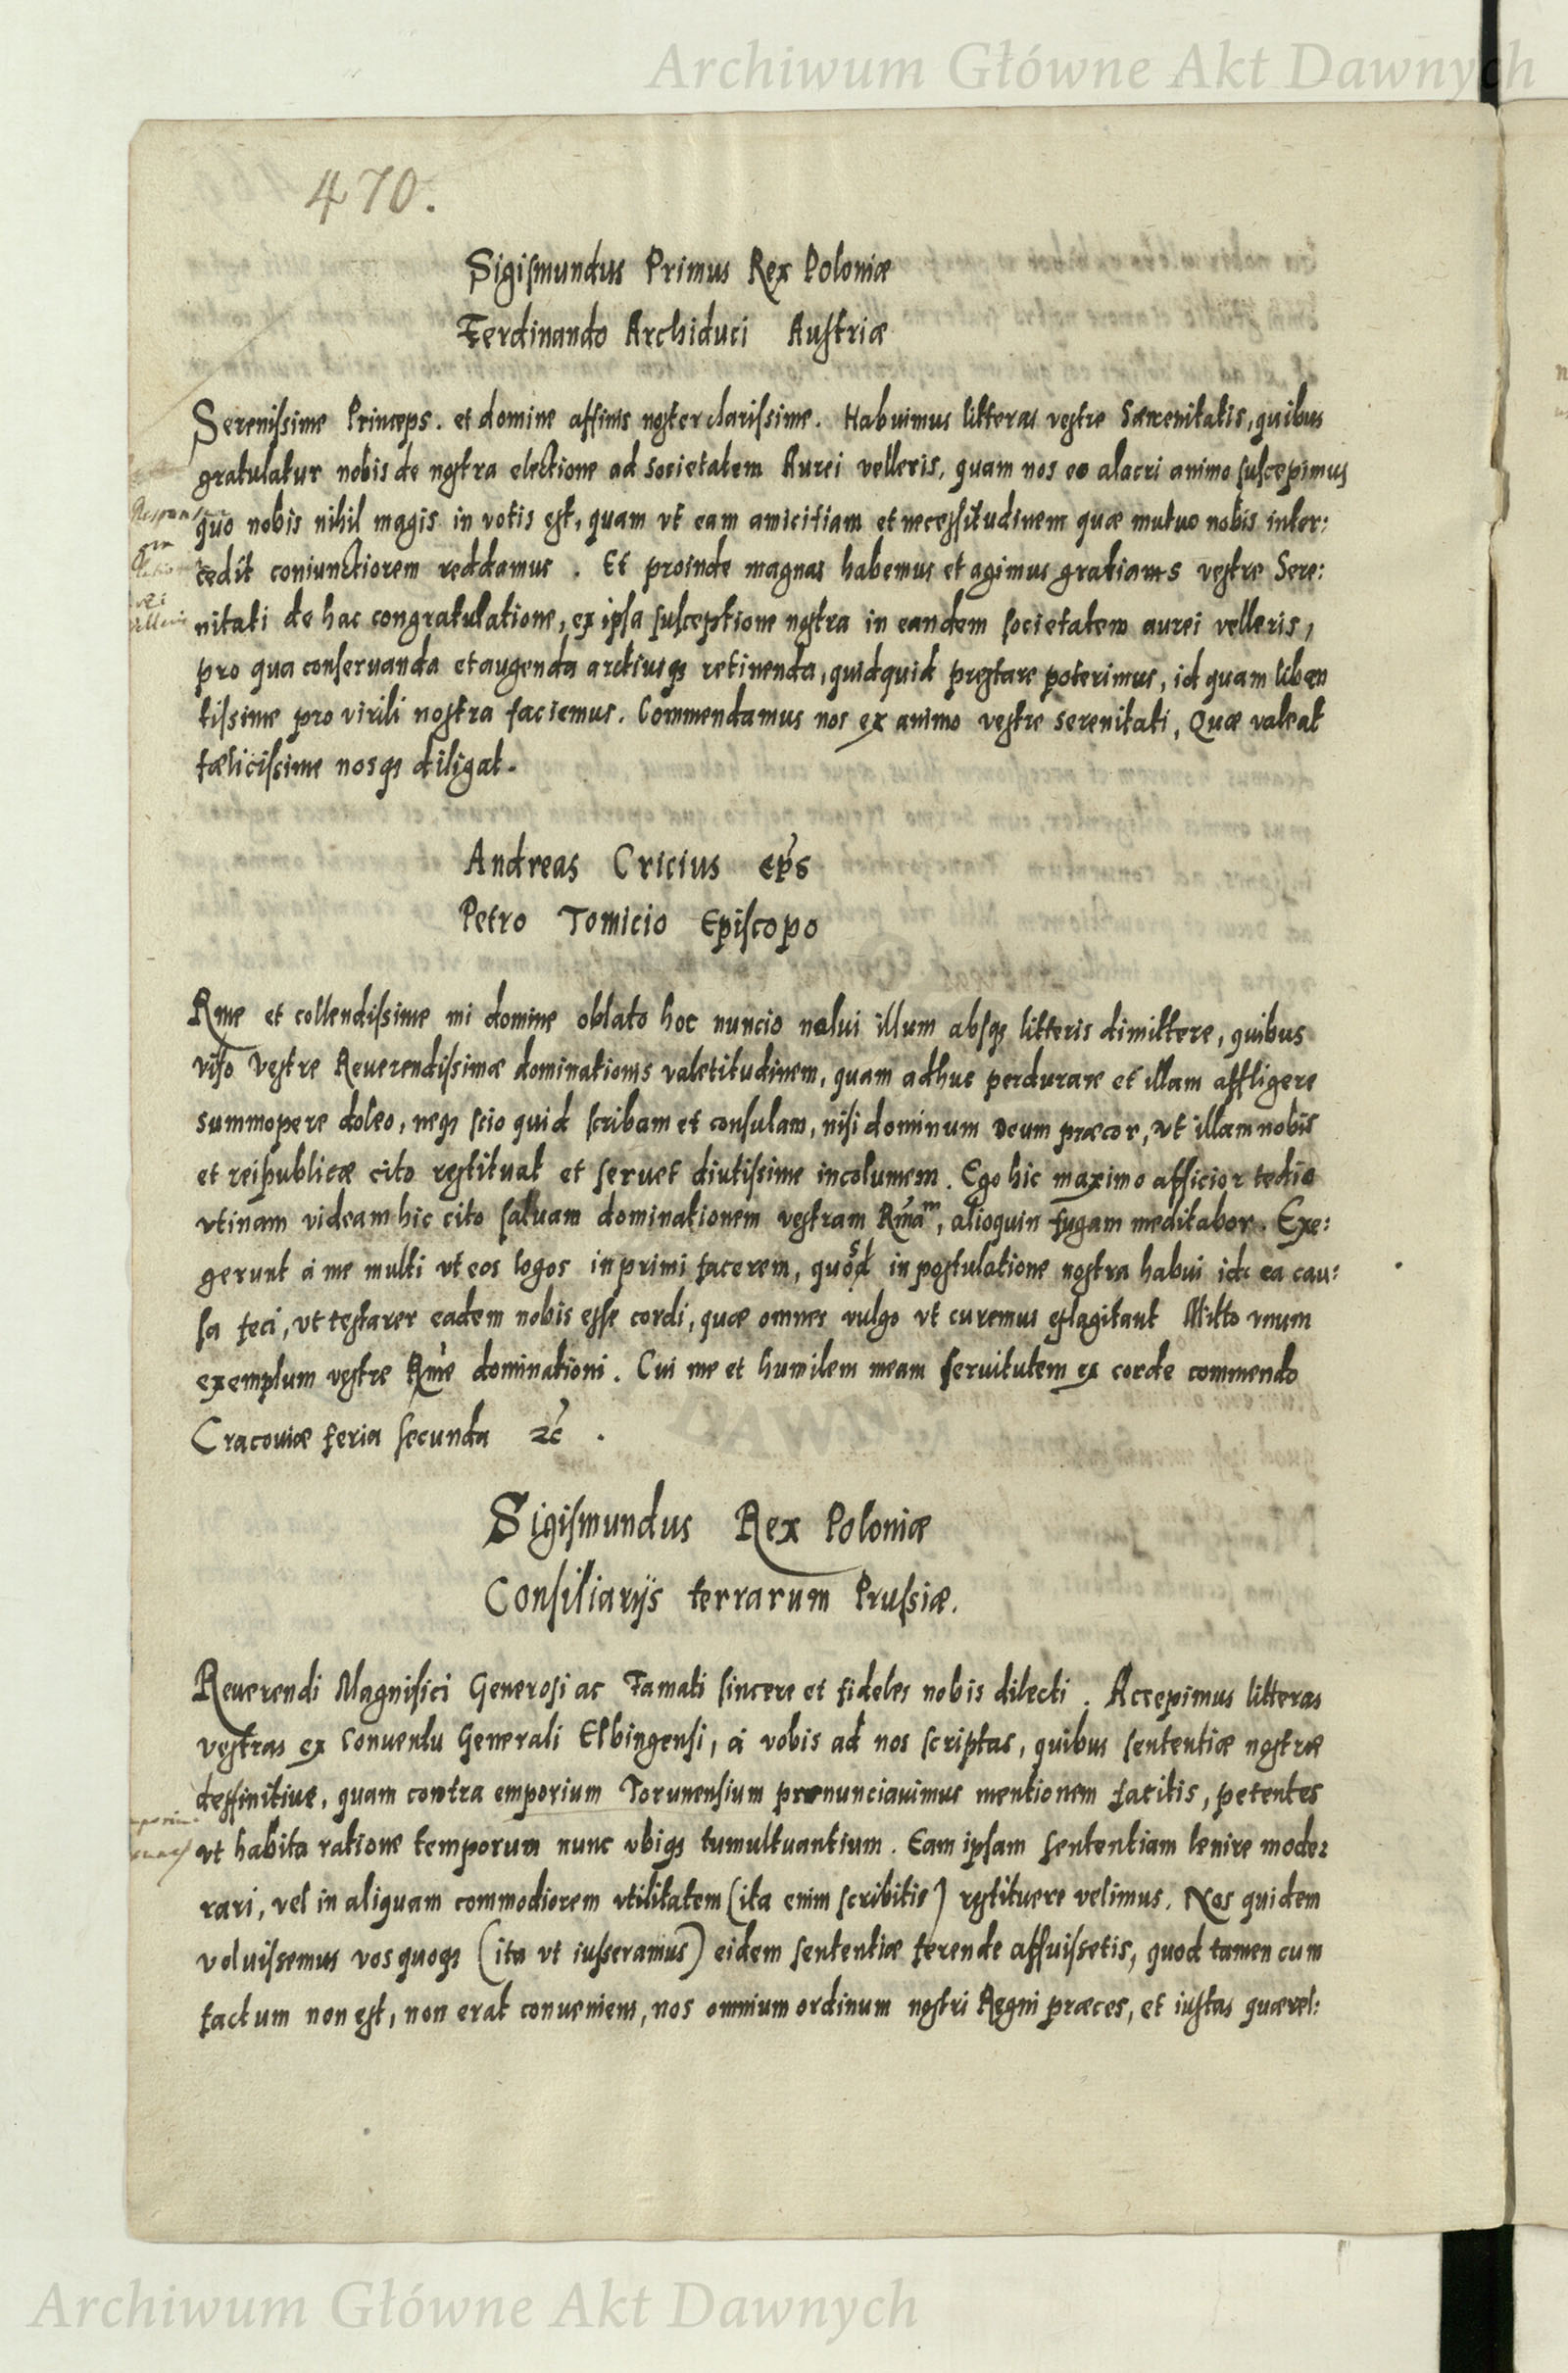 Archiwum Główne Akt Dawnych
470.
Sigismundus Primus Rex Poloniæ
Ferdinando Archiduci Austriæ
Serenissime Princeps. et domine affinis noster clarissime. Habuimus litteras vestre Særenitatis, quibus
gratulatur nobis de nostra electione ad societatem Aurei velleris, quam nos eo alacri animo suscepimus
quo nobis nihil magis in votis est, quam vt eam amicitiam et necessitudinem quæ mutuo nobis inter:
cedit coniunctiorem reddamus. Et proinde magnas habemus et agimus gratiams vestre Sere:
nitati de hac congratulatione, ex ipsa susceptione nostra in eandem societatem aurei velleris,
pro qua conseruanda et augenda arctiusq; retinenda, quidquid prestare poterimus, id quam liben
tissime pro virili nostra faciemus. Commendamus nos ex animo vestre serenitati, Quæ valeat
fælicissime nosq; diligat.
Andreas Cricius ep̃s
Petro Tomicio Episcopo
Rme et collendissime mi domine oblato hoc nuncio nolui illum absq; litteris dimittere, quibus
viso Vestre Reuerendissimæ dominationis valetitudinem, quam adhuc perdurare et illam affligere
summopere doleo, neq; scio quid scribam et consulam, nisi dominum Deum præcor, vt illam nobis
et reipublicæ cito restituat et seruet diutissime incolumem. Ego hic maximo afficior tedio
vtinam videam hic cito saluam dominationem vestram Rmãm, alioquin fugam meditabor. Exe:
gerunt á me multi vt eos logos inprimi facerem, quos in postulatione nostra habui idq ea cau:
sa feci, vt testarer eadem nobis esse cordi, quæ omnes vulgo vt curemus eflagitant Mitto vnum
exemplum vestre Rm̃e dominationi. Cui me et humilem meam seruitutem ex corde commendo
Cracouiæ feria secunda ꝛc̃ .
Sigismundus Rex Poloniæ
Consiliarijs terrarum Prussiæ.
Reuerendi Magnifici Generosi ac Famati sincere et fideles nobis dilecti. Accepimus litteras
vestras ex Conuentu Generali Elbingensi, á vobis ad nos scriptas, quibus sententiæ nostræ
deffinitiue, quam contra emporium Torunensium pronunciauimus mentionem facitis, petentes
vt habita ratione temporum nunc vbiq; tumultuantium. Eam ipsam sententiam lenire mode:
rari, vel in aliquam commodiorem vtilitatem (ita enim scribitis) restituere velimus. Nos quidem
voluissemus vos quoq; (ita vt iusseramus) eidem sententiæ ferende affuissetis, quod tamen cum
factum non est, non erat conueniens, nos omnium ordinum nostri Regni præces, et iustas quærel:
Archiwum Główne Akt Dawnych